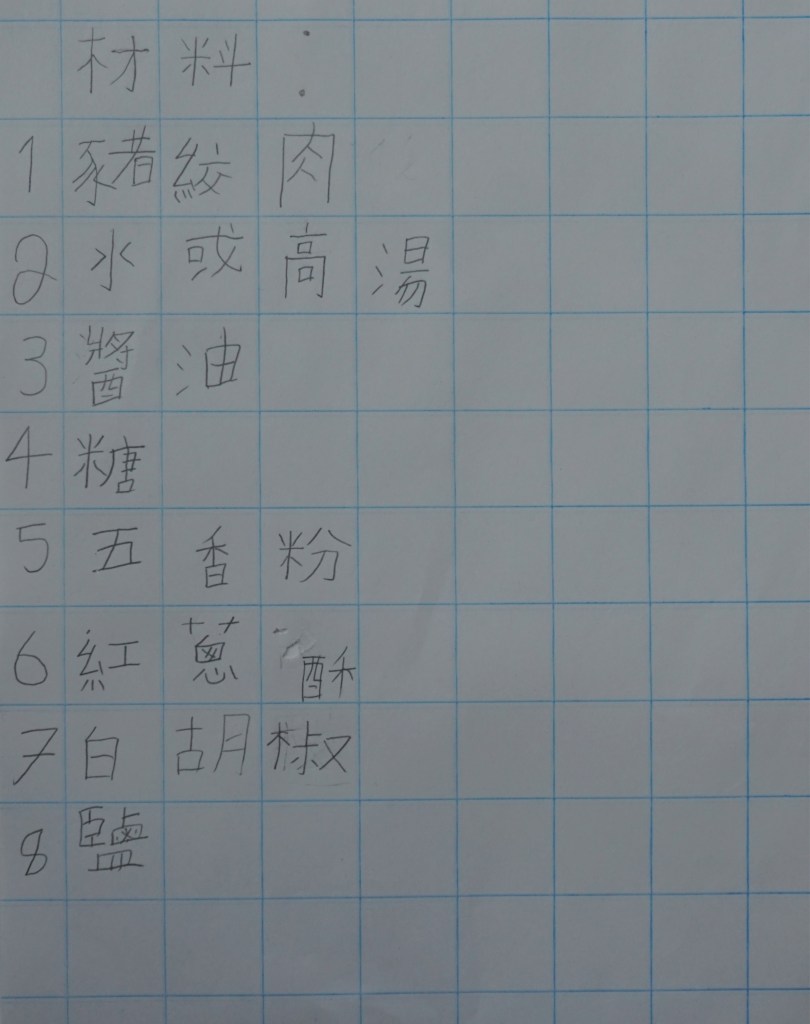 材料：
1豬絞肉
2水或高湯
3醬油
4糖
5五香粉
6紅蔥酥
7白胡椒
8鹽